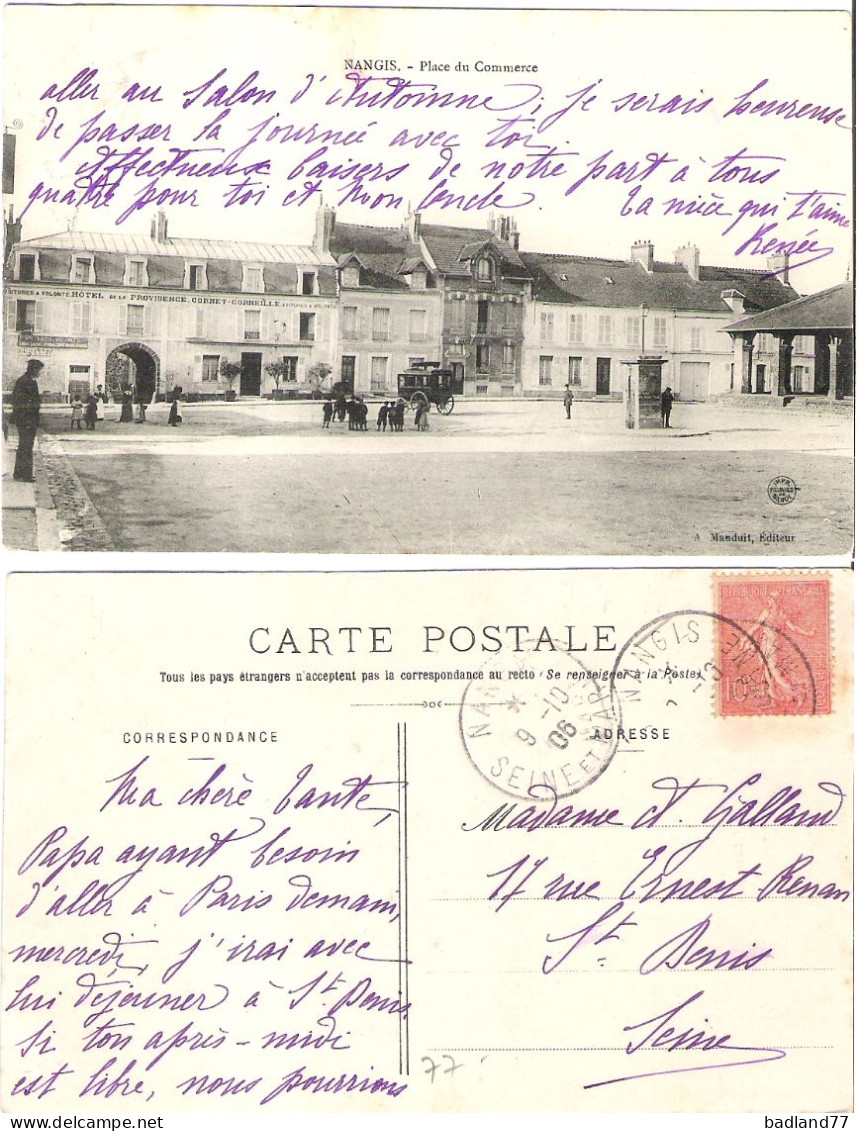 NANGIS. - Place du Commerce
aller au Salon d'Automne, je serais heureuse
de passer la journée avec toi.
Affectueux baisers de notre part à tous
quatre pour toi et mon oncle.
Ta nièce qui t'aime
Renée
HÔTEL DE LA PROVIDENCE, CORNET-CORNEILLE
A Manduit, Éditeur
CARTE POSTALE
Tous les pays étrangers n'acceptent pas la correspondance au recto (Se renseigner à la Poste)
CORRESPONDANCE
ADRESSE
NANGIS
9 -10
06
SEINE ET MARNE
NANGIS
REPUBLIQUE FRANÇAISE
10
Ma chère Tante,
Papa ayant besoin
d'aller à Paris demain,
mercredi, j'irai avec
lui déjeuner à St Denis.
Si ton après-midi
est libre, nous pourrions
Madame A. Galland
17 rue Ernest Renan
St Denis
Seine
77
badland77